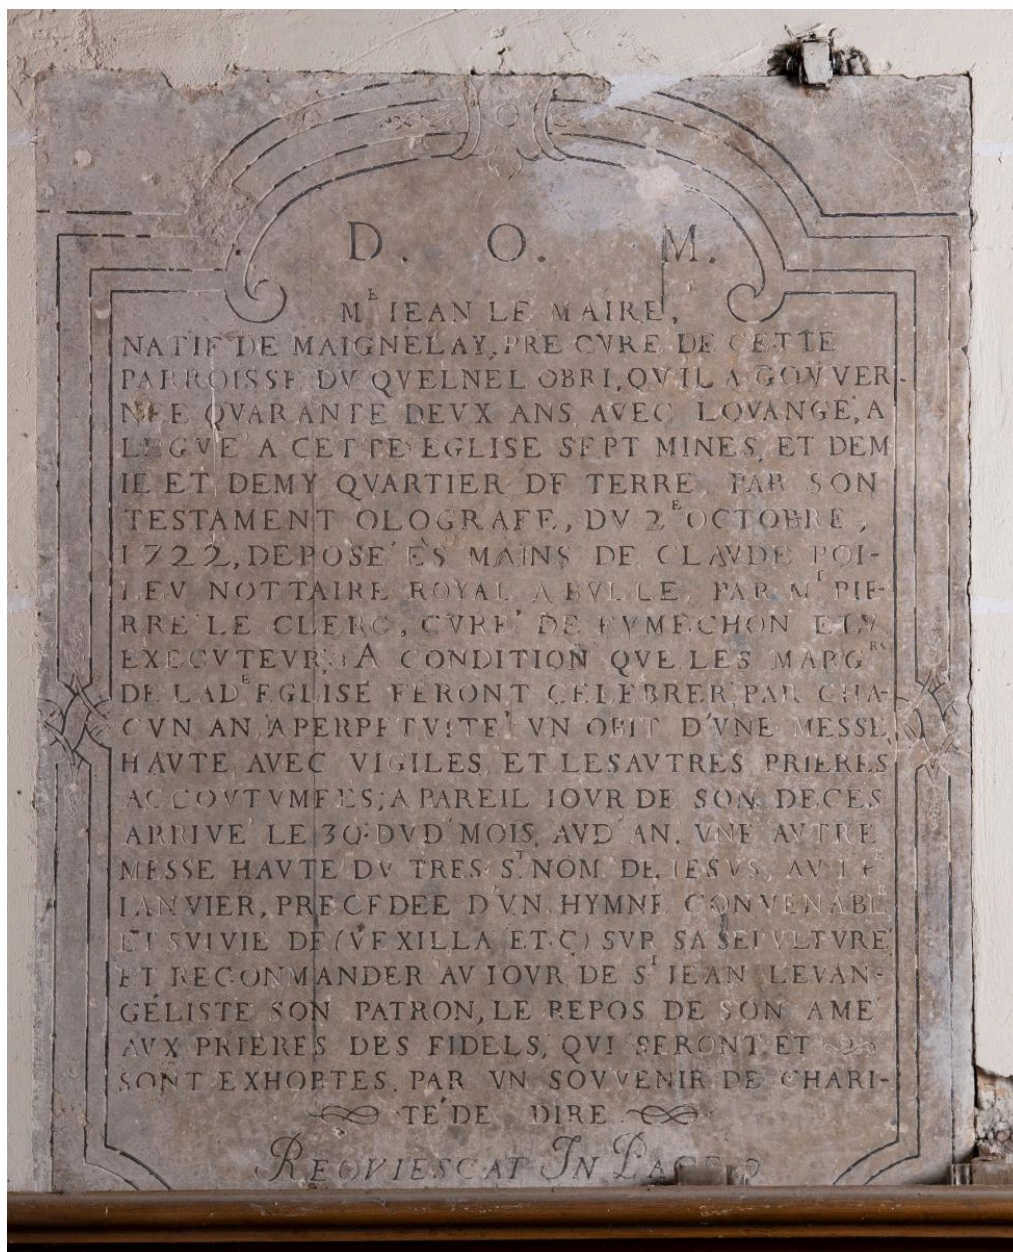 D. O. M.
M.E IEAN LE MAIRE,
NATIF DE MAIGNELAY, PRE CVRE DE CETTE
PARROISSE DV QVELNEL OBRI, QV IL A GOVVER-
NÉE QVARANTE DEVX ANS AVEC LOVANGE, A
LEGVÉ A CETTE EGLISE SEPT MINES, ET DEM
IE ET DEMY QVARTIER DE TERRE, PAR SON
TESTAMENT OLOGRAFE, DV 2E OCTOBRE,
1722, DEPOSÉ ÈS MAINS DE CLAVDE POI-
LEV NOTTAIRE ROYAL A BVLLE, PAR Mr PIE-
RRE LE CLERC, CVRÉ DE FVMÉCHON
EXECVTEVR; A CONDITION QVE LES MARGRS
DE LADE EGLISE FERONT CELEBRER, PAR CHA-
CVN AN A PERPETVITÉ VN OBIT D'VNE MESSE
HAVTE AVEC VIGILES, ET LES AVTRES PRIERES
ACCOVTVMÉES; A PAREIL IOVR DE SON DECES
ARRIVÉ LE 30. DVD' MOIS, AVD' AN. VNE AVTRE
MESSE HAVTE DV TRES ST. NOM DE IESVS, AV 1ER
IANVIER, PRECEDÉE D'VN HYMNE CONVENABLE
ET SVIVIE DE (VEXILLA ET.C) SVR SA SEPVLTVRE
ET RECONMANDER AV IOVR DE ST JEAN LEVAN-
GÉLISTE SON PATRON, LE REPOS DE SON AME
AVX PRIERES DES FIDELS, QVI SERONT ET
SONT EXHORTES, PAR VN SOVVENIR DE CHARI-
TÉ DE DIRE
REQVIESCAT IN PACE